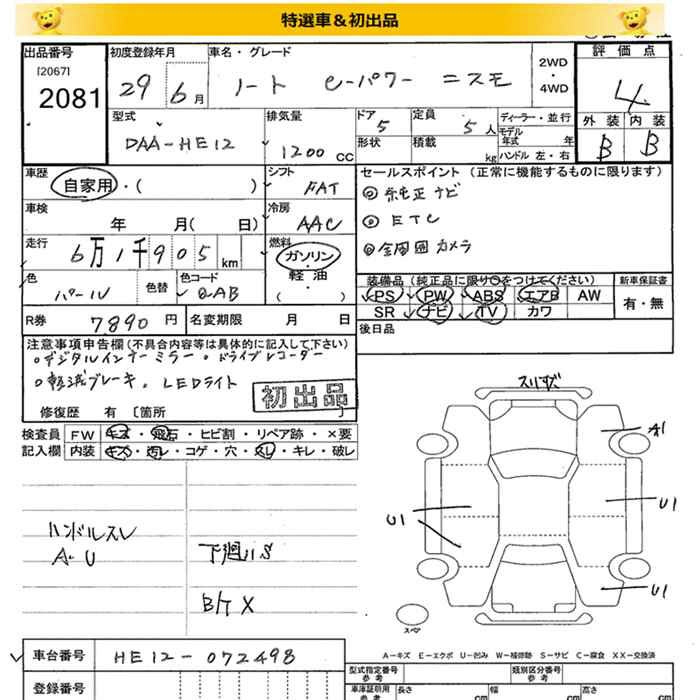 特選車&初出品
出品番号
[2067]
2081
初度登録年月
29 6月
車名・グレード
ノート e-パワー ニスモ
2WD
・
4WD
評価点
4
外装 内装
B B
型式
DAA-HE12
排気量
1200 cc
ドア
5
形状
定員
5人
積載
kg
ディーラー・並行
モデル
年式 年
ハンドル 左・右
車歴
自家用・( )
シフト
FAT
車検
年 月( 日)
冷房
AAC
走行
6万1千905 km
燃料
ガソリン
・
軽油
( )
色
パール
色替
色コード
QAB
R券 7890 円
名変期限 月 日
セールスポイント (正常に機能するものに限ります)
◎純正ナビ
◎ETC
◎全周囲カメラ
装備品(純正品に限り○をつけてください)
PS PW ABS エアB AW
SR ナビ TV カワ
新車保証書
有・無
後日品
注意事項申告欄(不具合内容等は具体的に記入して下さい)
○デジタルインナーミラー ○ドライブレコーダー
○軽減ブレーキ 。LEDライト
初出品
修復歴 有 〔箇所 〕
検査員 FW キズ・飛石・ヒビ割・リペア跡・×要
記入欄 内装 キズ・汚レ・コゲ・穴・スレ・キレ・破レ
ハンドルスレ
A U
下廻りS
スリキズ
A1
U1
U1
U1
スペア
車台番号 HE12-072498
登録番号
A－キズ E－エクボ U－凹み W－補修跡 S－サビ C－腐食 XX－交換済
型式指定番号
参考
類別区分番号
参考
車庫証明用
参考
長さ cm 幅 cm 高さ cm